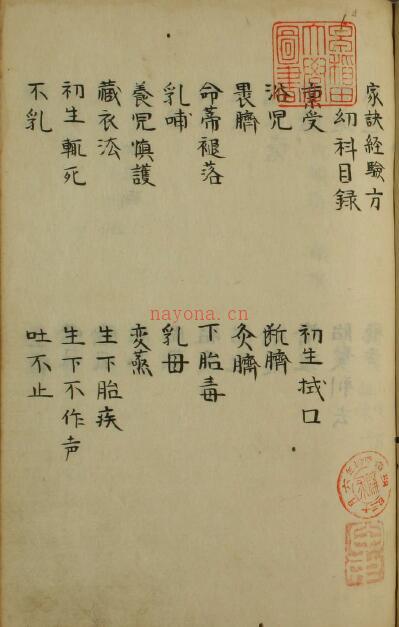 家訣経驗方
幼科目録
稟受 初生拭口
浴児 断臍
畏臍 灸臍
命蒂褪落 下胎毒
乳哺 乳母
養児慎護 変蒸
藏衣法 生下胎疾
初生輒死 生下不作声
不乳 吐不止
早稲田大學圖書
nayona.cn